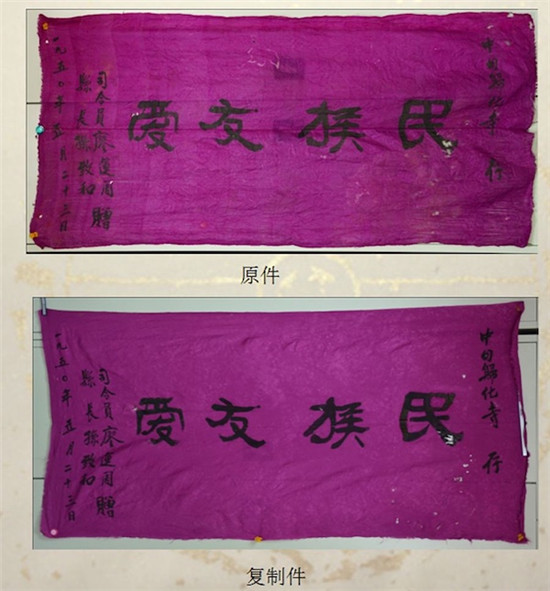 中甸歸化寺
民族友爱
司令員廖運周 贈
縣長孫致和
一九五〇年五月二十三日
原件
中甸歸化寺
民族友爱
司令員廖運周 贈
縣長孫致和
一九五〇年五月二十三日
复制件